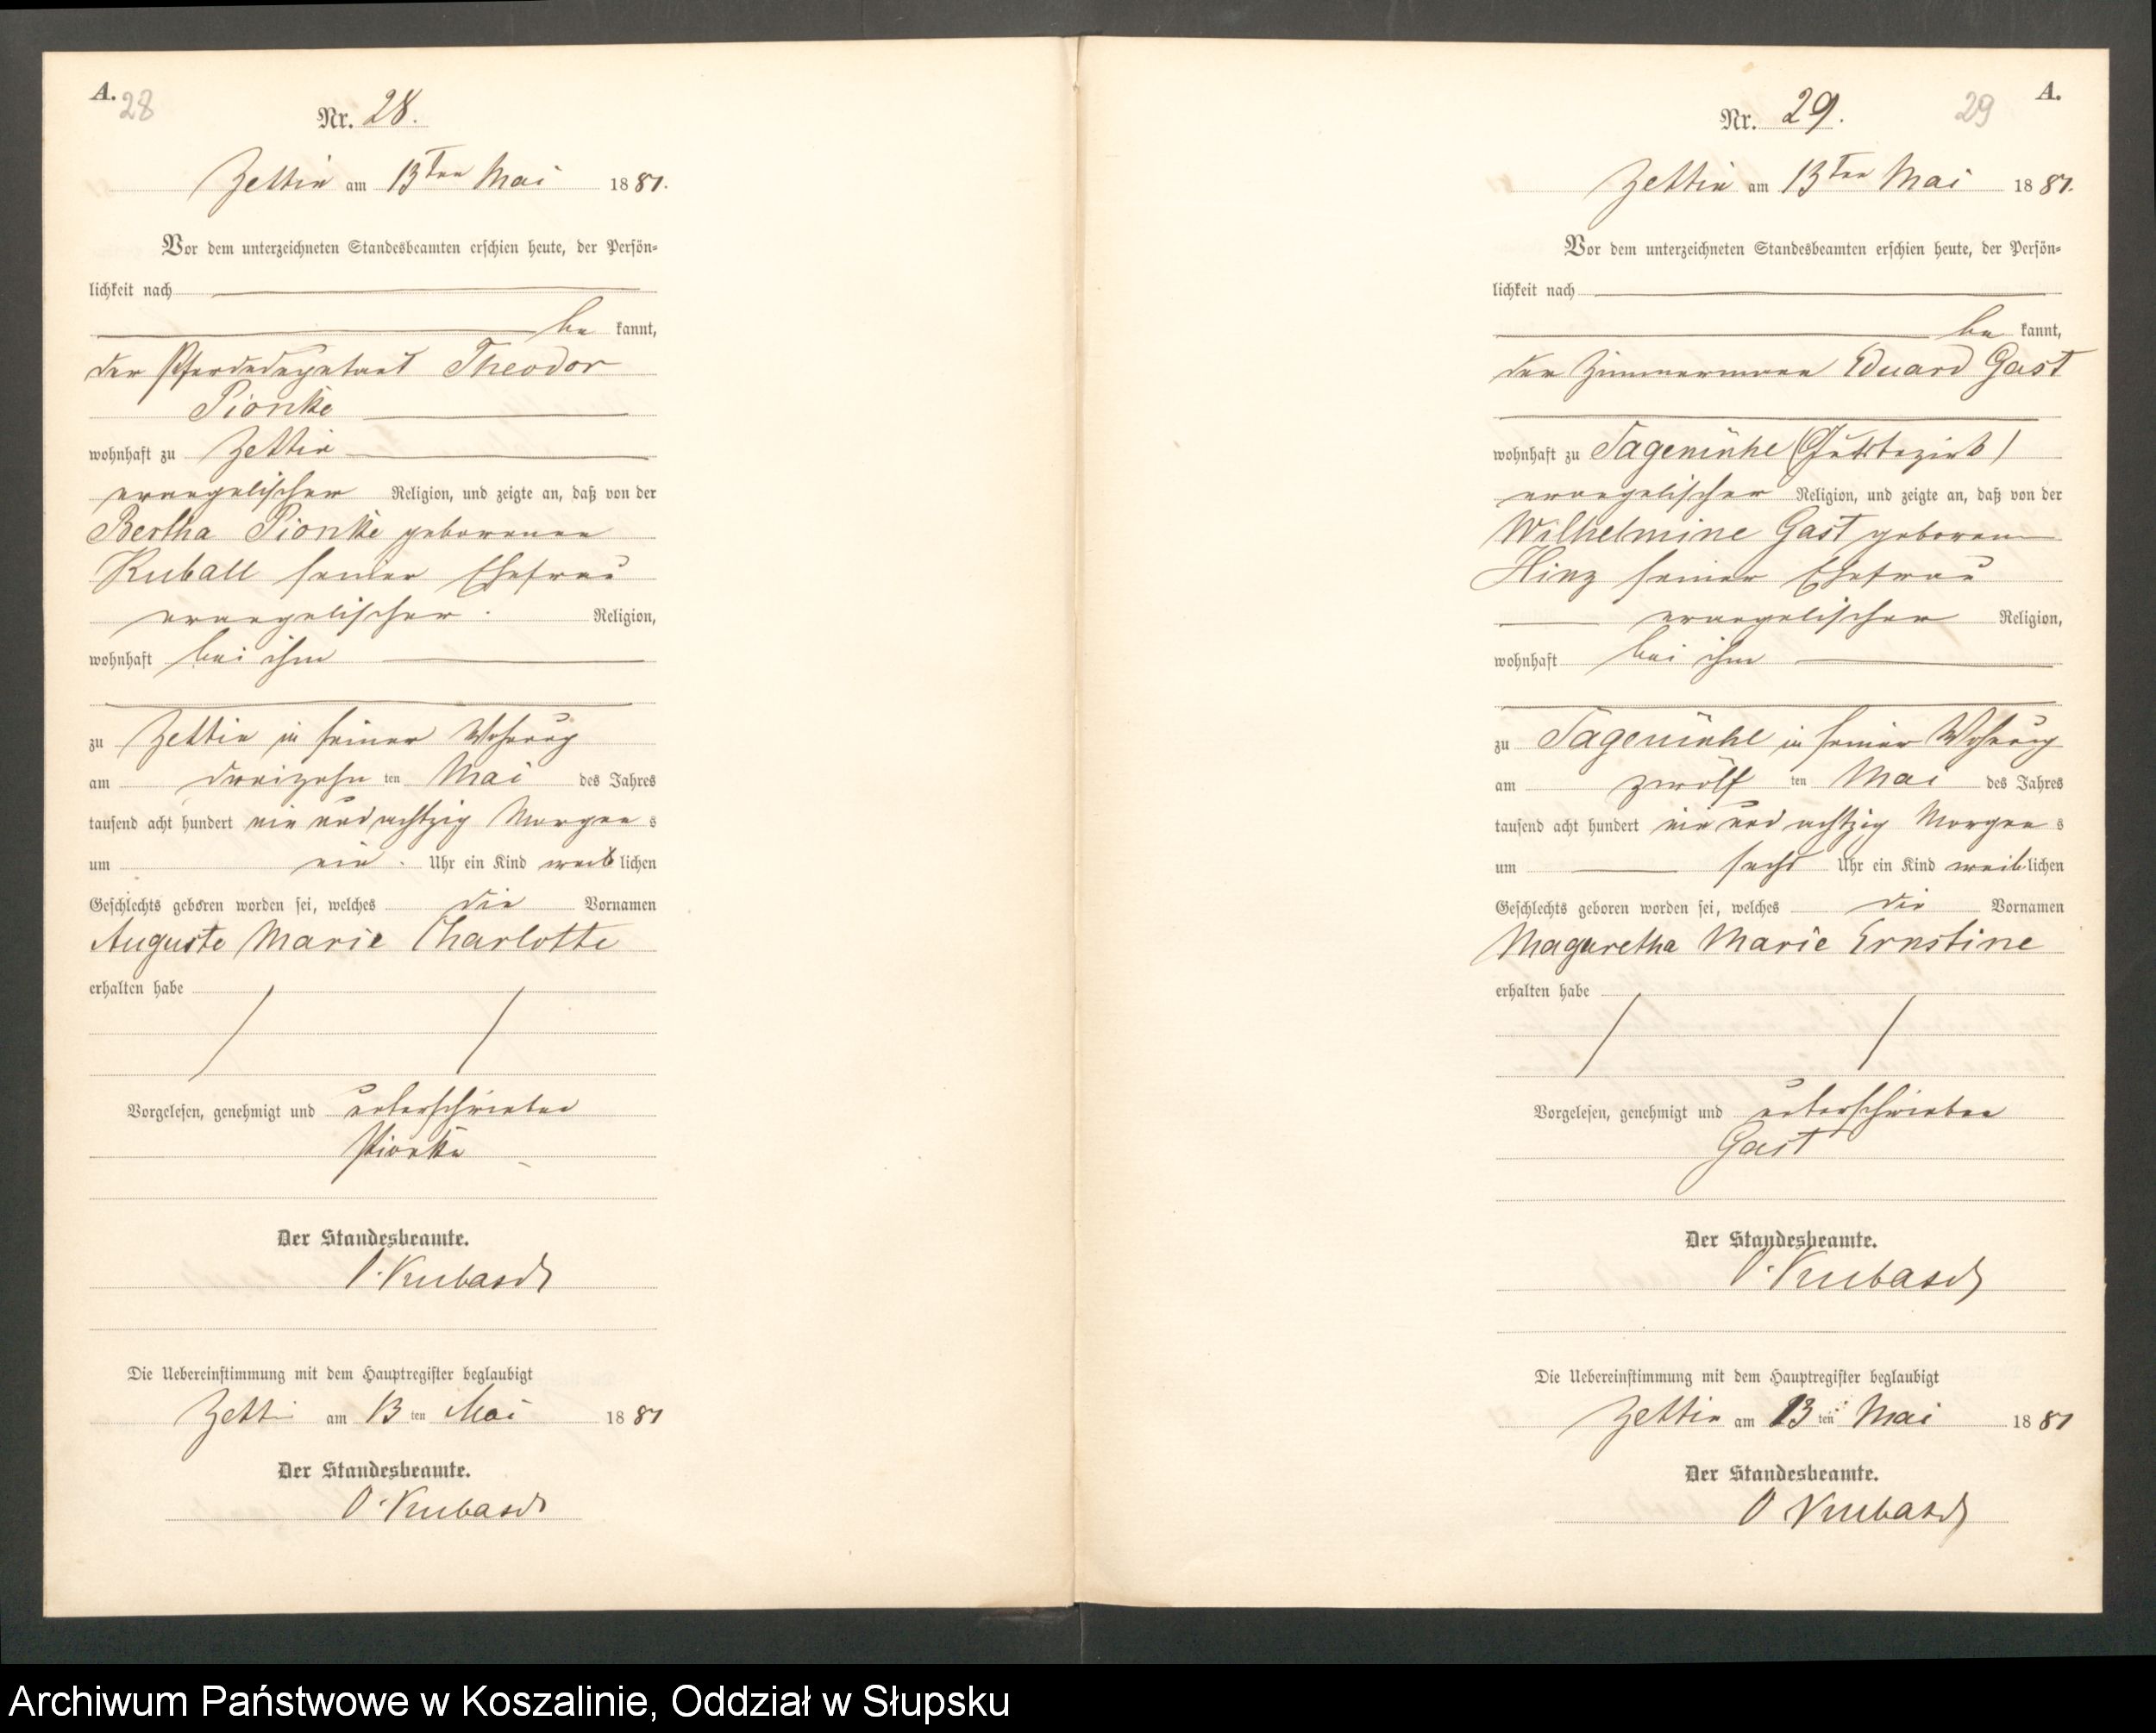 A.
28
Nr. 28.
Zettin am 13ten Mai 1881.
Vor dem unterzeichneten Standesbeamten erschien heute, der Persön-
lichkeit nach
be kannt,
der Theodor
Pionke
wohnhaft zu Zettin
evangelischer Religion, und zeigte an, daß von der
Bertha Pionke geborenen
Kuball seiner Ehefrau
evangelischer Religion,
wohnhaft bei ihm
zu Zettin in seiner Wohnung
am dreizehn ten Mai des Jahres
tausend acht hundert ein und achtzig Morgen s
um ein Uhr ein Kind weib lichen
Geschlechts geboren worden sei, welches die Vornamen
Auguste Marie Charlotte
erhalten habe
Vorgelesen, genehmigt und unterschrieben
Pionke
Der Standesbeamte.
O. Kubasch
Die Uebereinstimmung mit dem Hauptregister beglaubigt
Zettin am 13 ten Mai 1881
Der Standesbeamte.
O. Kubasch
A.
29
Nr. 29.
Zettin am 13ten Mai 1881.
Vor dem unterzeichneten Standesbeamten erschien heute, der Persön-
lichkeit nach
be kannt,
der Zimmermann Eduard Gast
wohnhaft zu Sägemühle (Gutsbezirk)
evangelischer Religion, und zeigte an, daß von der
Wilhelmine Gast geborenen
Hinz seiner Ehefrau
evangelischer Religion,
wohnhaft bei ihm
zu Sägemühl in seiner Wohnung
am zwölf ten Mai des Jahres
tausend acht hundert ein und achtzig Morgen s
um sechs Uhr ein Kind weib lichen
Geschlechts geboren worden sei, welches die Vornamen
Magaretha Marie Ernstine
erhalten habe
Vorgelesen, genehmigt und unterschrieben
Gast
Der Standesbeamte.
O. Kubasch
Die Uebereinstimmung mit dem Hauptregister beglaubigt
Zettin am 13 ten Mai 1881
Der Standesbeamte.
O Kubasch
Archiwum Państwowe w Koszalinie, Oddział w Słupsku